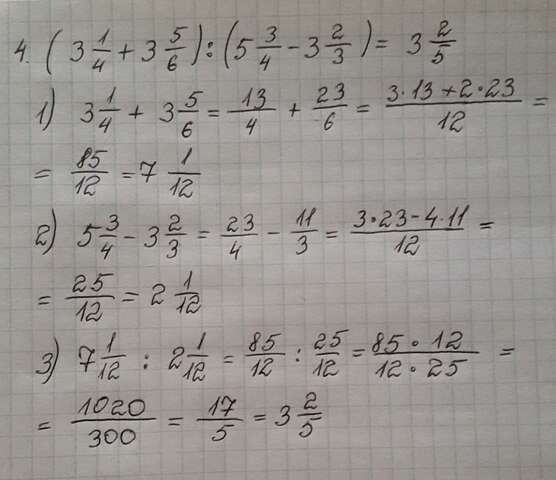 4. (3 1/4 + 3 5/6) : (5 3/4 - 3 2/3) = 3 2/5
1) 3 1/4 + 3 5/6 = 13/4 + 23/6 = (3·13+2·23)/12 =
= 85/12 = 7 1/12
2) 5 3/4 - 3 2/3 = 23/4 - 11/3 = (3·23-4·11)/12 =
= 25/12 = 2 1/12
3) 7 1/12 : 2 1/12 = 85/12 : 25/12 = (85·12)/(12·25) =
= 1020/300 = 17/5 = 3 2/5